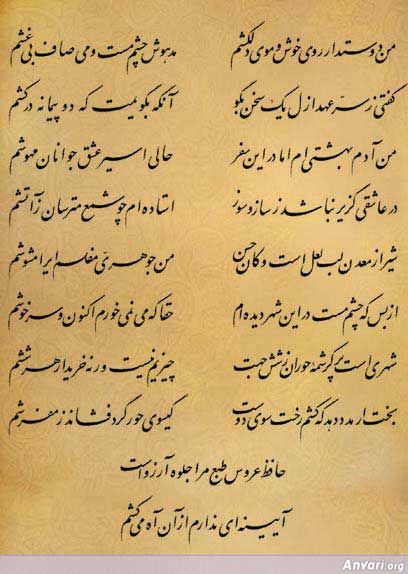 من دوستدار روی خوش و موی دلکشم مدهوش چشم مست و می صاف بی غشم
گفتی ز سرّ عهد ازل یک سخن بگو آنگه بگویمت که دو پیمانه درکشم
من آدم بهشتی ام اما در این سفر حالی اسیر عشق جوانان مهوشم
در عاشقی گزیر نباشد ز ساز و سوز استاده ام چو شمع مترسان ز آتشم
شیراز معدن لب لعل است و کان حسن من جوهریّ مفلسم ایرا مشوشم
از بس که چشم مست در این شهر دیده ام حقا که می نمی خورم اکنون و سرخوشم
شهری است پر کرشمه حوران ز شش جهت چیزیم نیست ورنه خریدار هر ششم
بخت ار مدد دهد که کشم رخت سوی دوست گیسوی حور گرد فشاند ز مفرشم
حافظ عروس طبع مرا جلوه آرزوست
آیینه ای ندارم از آن آه می کشم
Anvari.org